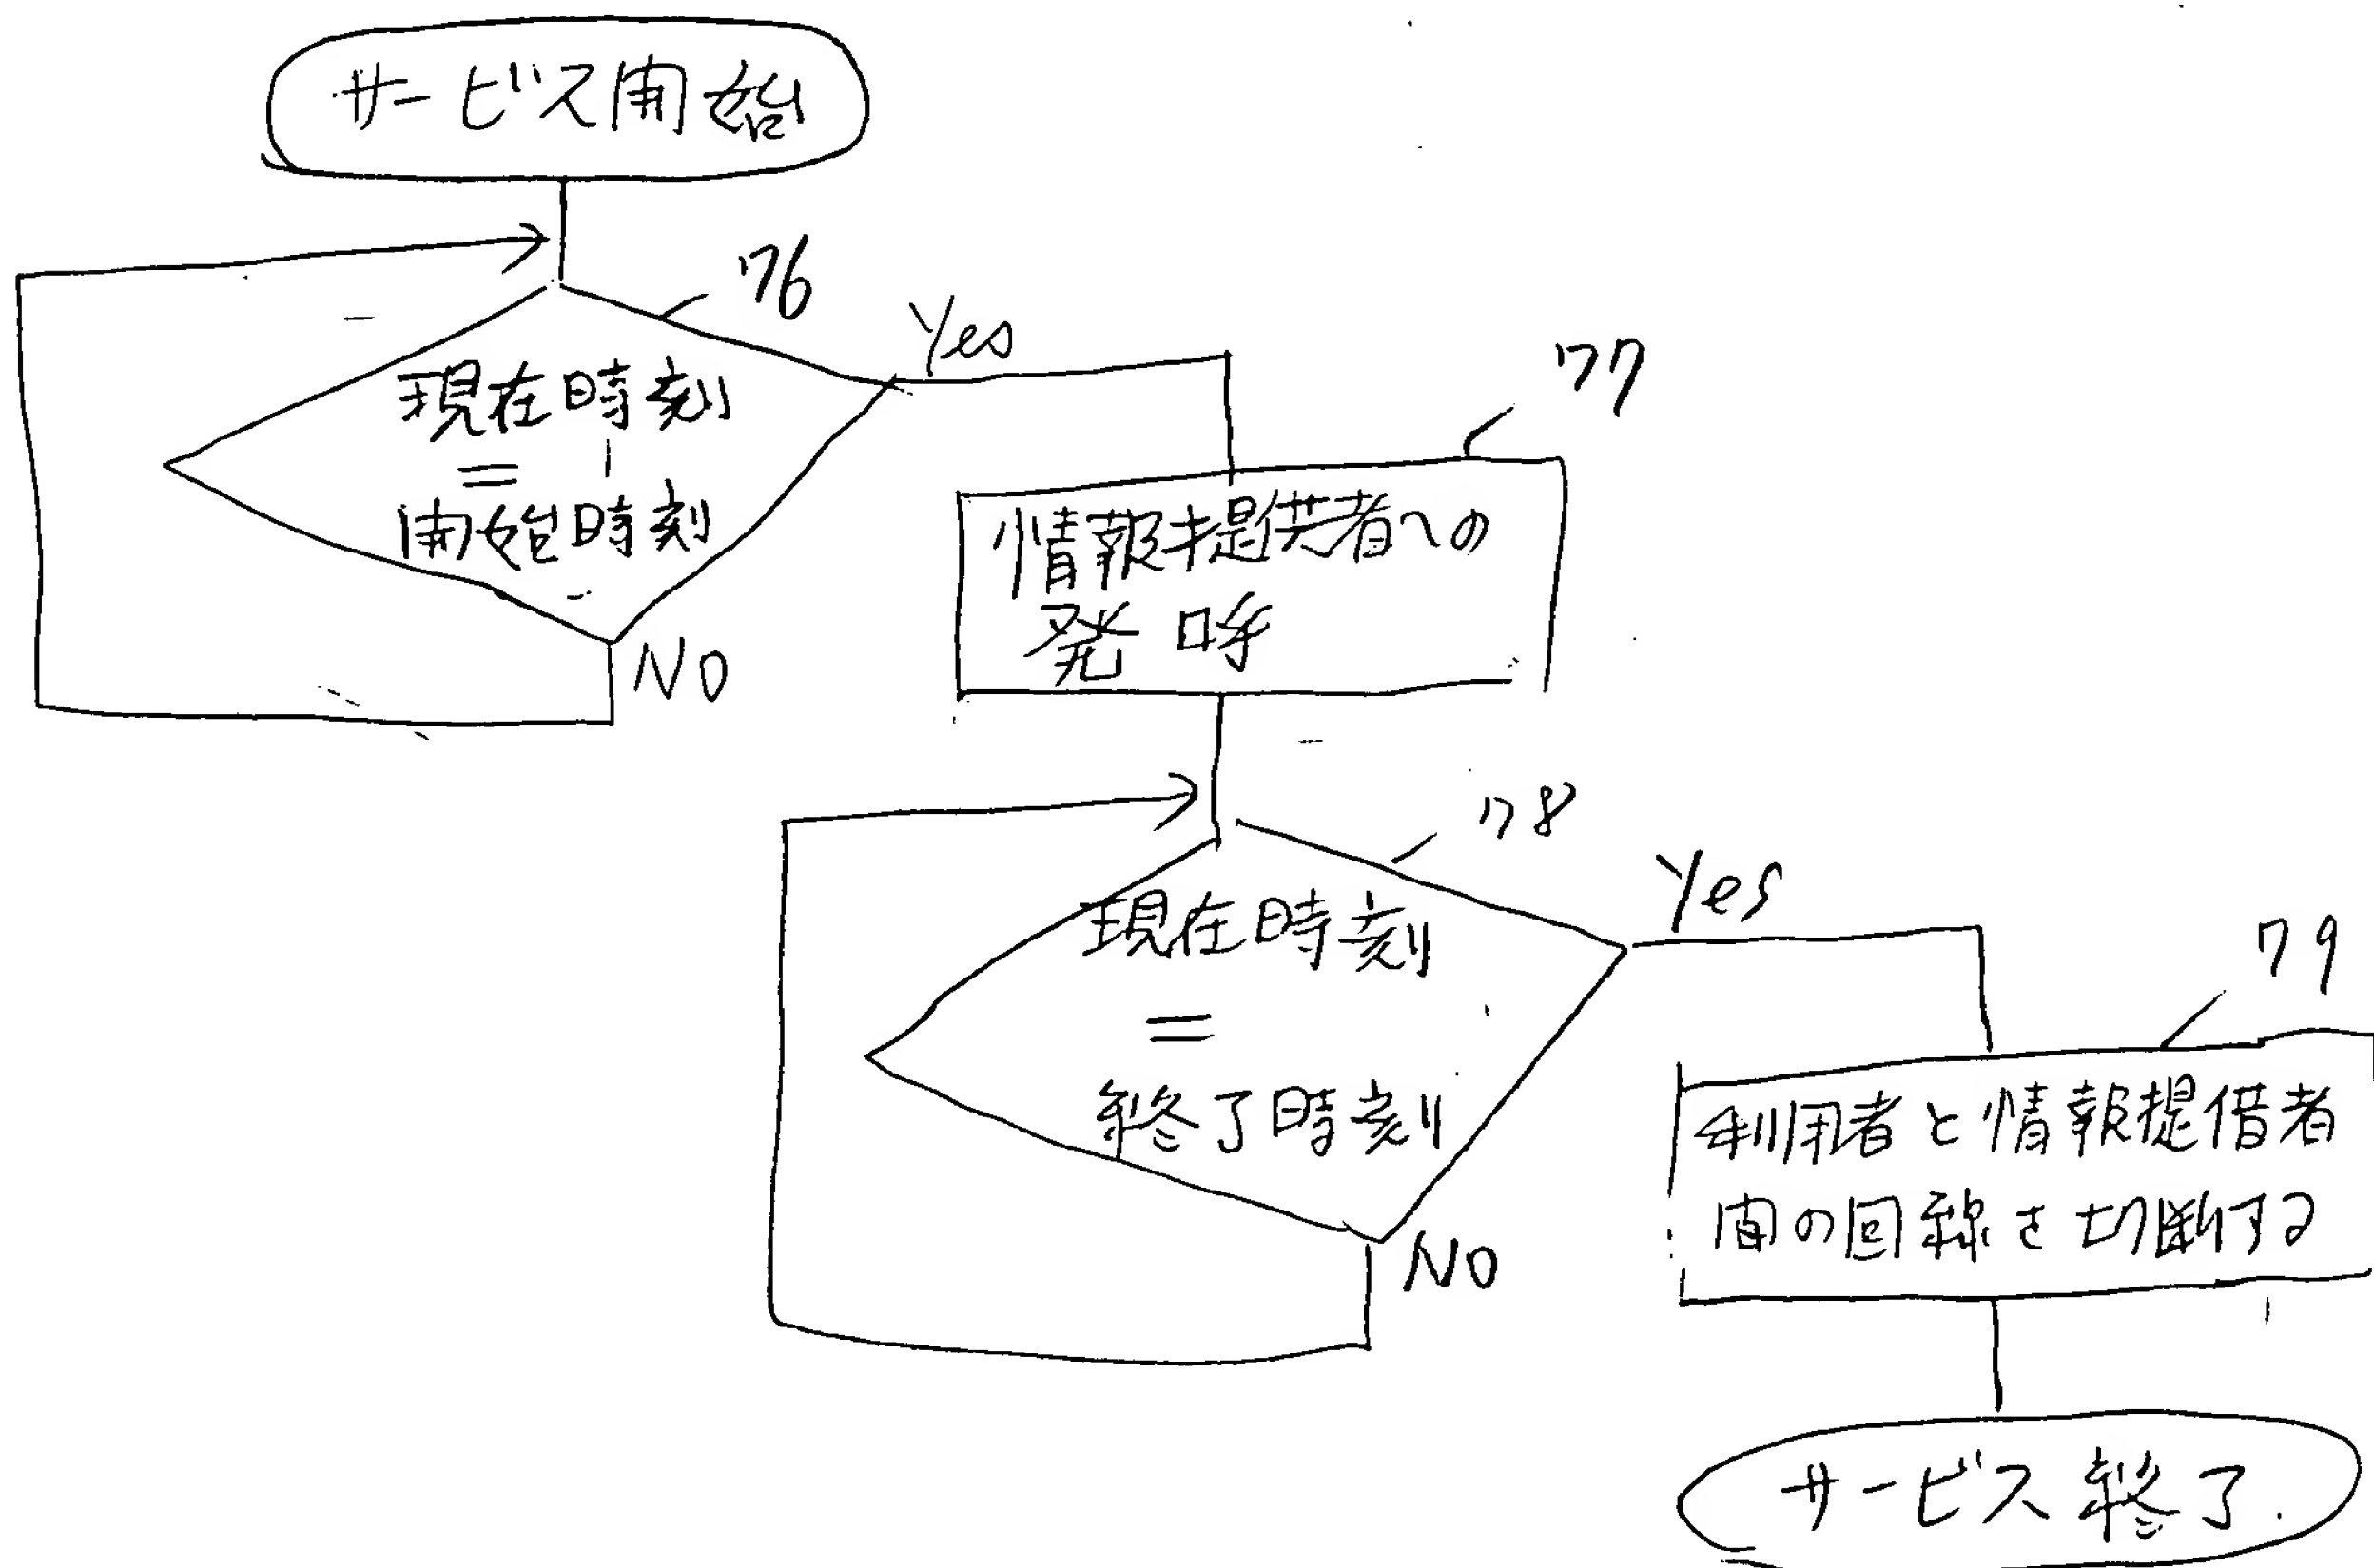 サービス開始
76
Yes
現在時刻
=
開始時刻
NO
77
情報提供者への
発呼
78
Yes
現在時刻
=
終了時刻
NO
79
利用者と情報提借者
間の回線を切断する
サービス終了